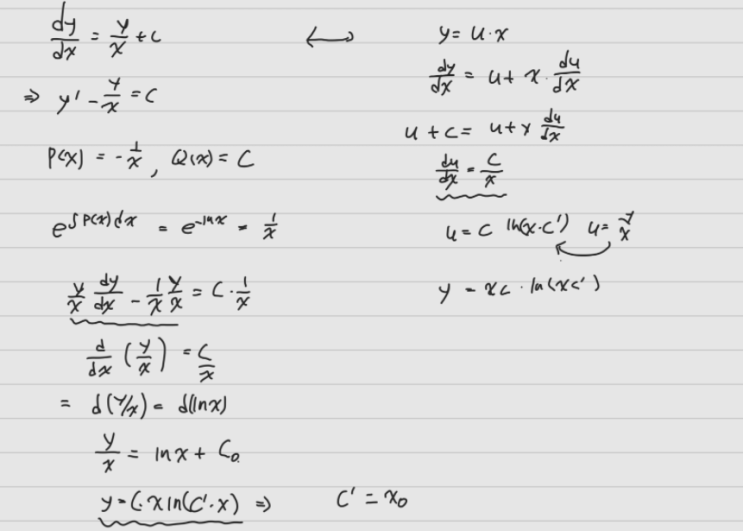 dy/dx = y/x + c
⇒ y' - y/x = C
P(x) = -1/x, Q(x) = C
e^∫P(x)dx = e^-lnx = 1/x
y/x dy/dx - 1/x y/x = C · 1/x
d/dx (y/x) = C/x
= d(y/x) = d(lnx)
y/x = ln x + C₀
y = C·x ln(C'·x) ⇒ C' = x₀
⟷ y = u·x
dy/dx = u + x · du/dx
u + c = u + x du/dx
du/dx = C/x
u = C ln(x·C') u = y/x
y = xc · ln(xc')